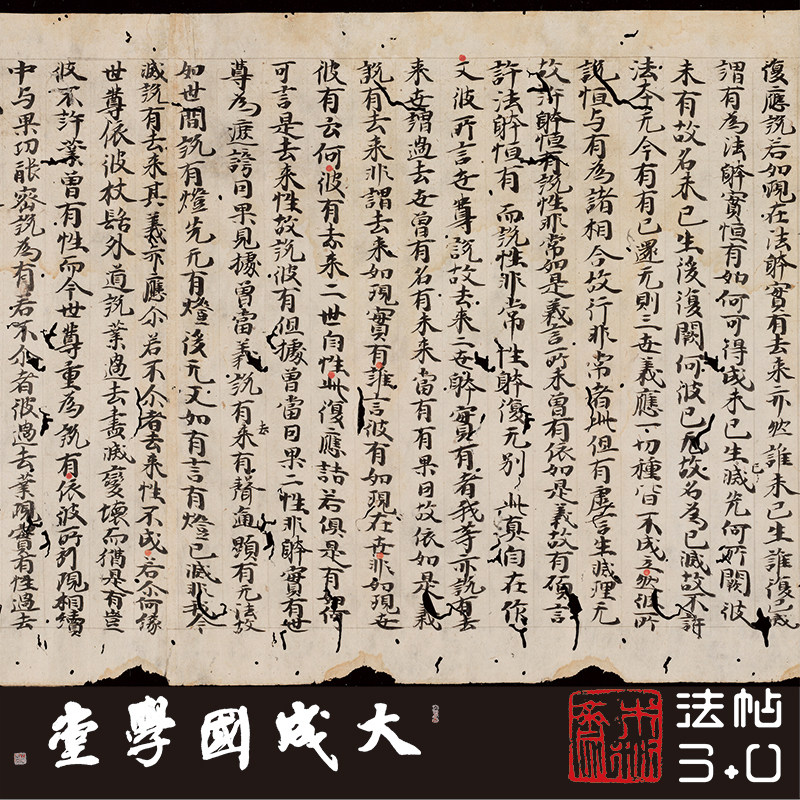 復應說若如現在法體實有去來亦然誰未已生誰復已滅
謂有為法體實恒有如何可得成未已生已滅先何所闕彼
未有故名未已生後復闕何彼已无故名為已滅故不許
法本无今有有已還无則三世義應一切種皆不成立然彼所
說恒与有為諸相合故行非常者此但有虛言生滅理无
故許體恒有說性非常如是義言所未曾有依如是義故有頌言
許法體恒有 而說性非常 性體復无別 此真自在作
又彼所言世尊說故去來二世體實有者我等亦說有去
來世謂過去世曾有名有未來當有有果因故依如是義
說有去來非謂去來如現實有誰言彼有如現在世非如現世
彼有云何彼有去來二世自性此復應詰若俱是有如何
可言是去來性故說彼有但據曾當因果二性非體實有世
尊為遮謗因果見據曾當義說有去來有聲通顯有无法故
如世間說有燈先无有燈後无又如有言有燈已滅非我今
滅說有去來其義亦應尒若不尒者去來性不成若尒何緣
世尊依彼杖髻外道說業過去盡滅變壞而猶是有豈
彼不許業曾有性而今世尊重為說有依彼所引現相續
中与果功能密說為有若不尒者彼過去業現實有性過去
大成國學堂
法帖
3.0